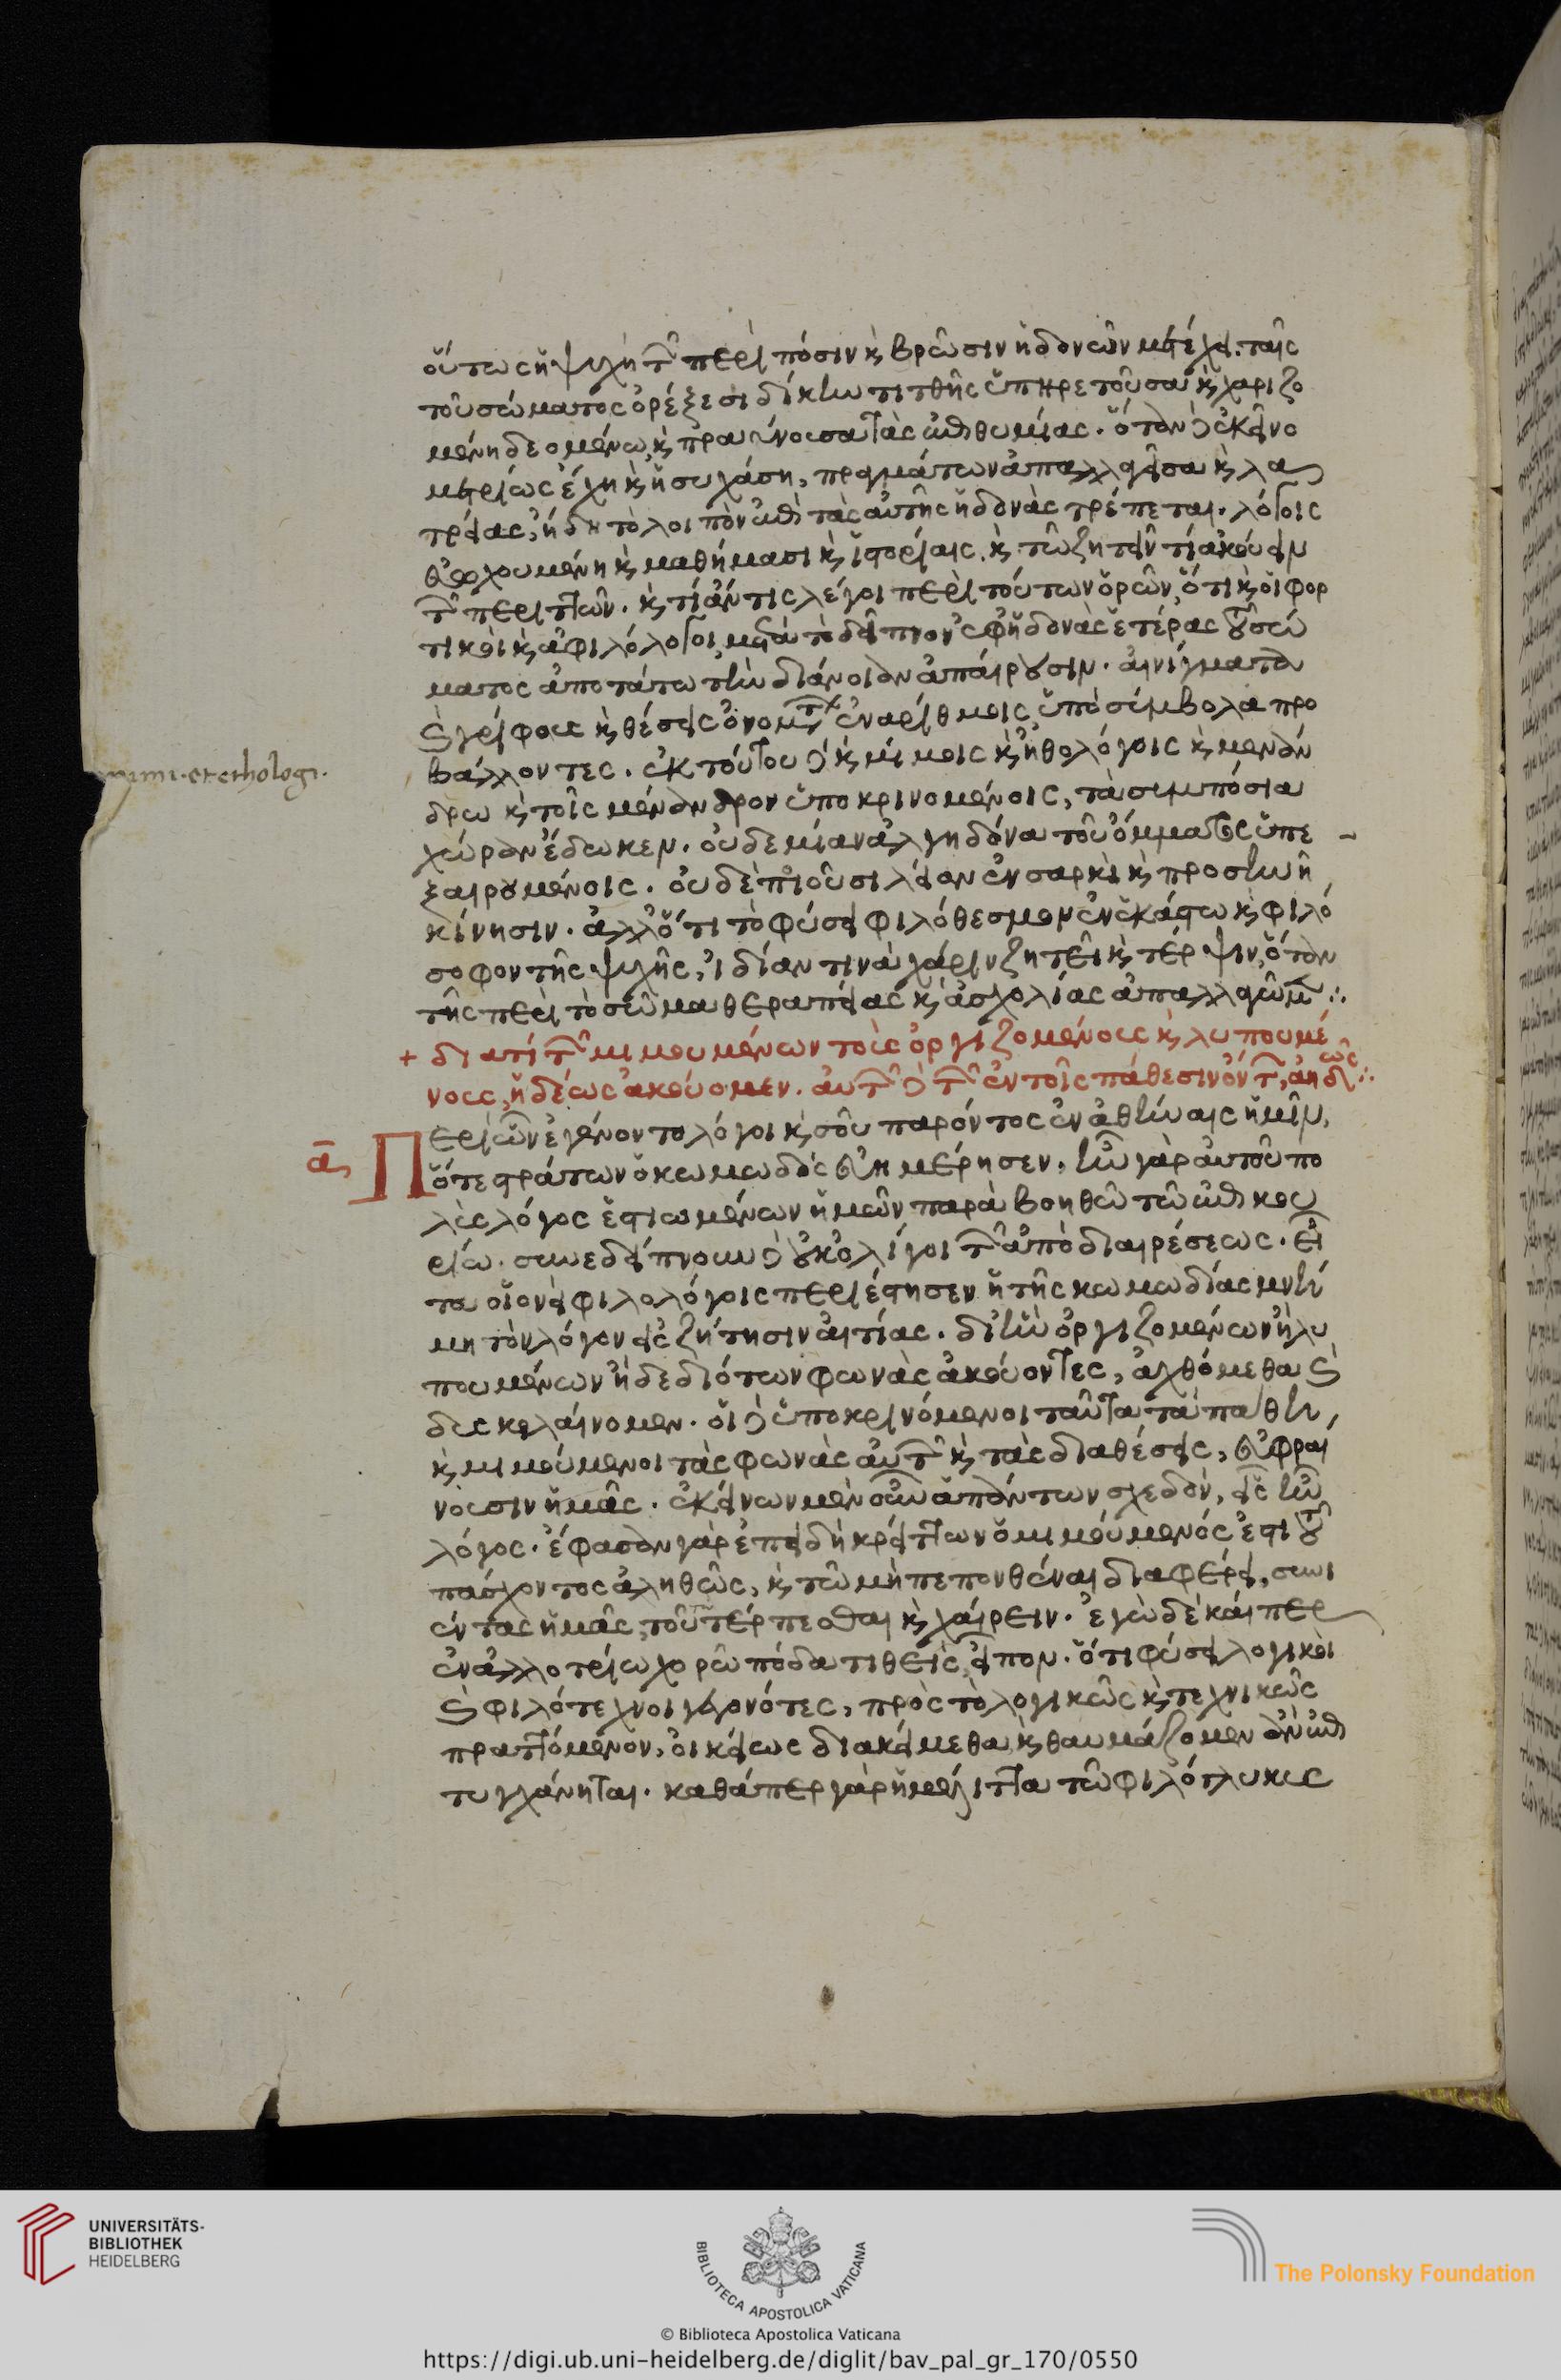 οὕτως ἡ ψυχὴ τῶν περὶ πόσιν καὶ βρῶσιν ἡδονῶν μετέχει. ταῖς
τοῦ σώματος ὀρέξεσι δίκην τιτθῆς ὑπηρετοῦσα καὶ χαριζο
μένη δεομένω, καὶ πραΰνουσα τὰς ἐπιθυμίας. ὅταν δ' ἐκεῖνο
μετρίως ἔχη καὶ ἡσυχάση, πραγμάτων ἀπαλλαγεῖσα καὶ λα
τρείας, ἤδη τὸ λοιπὸν ἐπὶ τὰς αὐτῆς ἡδονὰς τρέπεται. λόγοις
εὐωχουμένη καὶ μαθήμασι καὶ ἱστορίαις. καὶ τῶ ζητεῖν τί ἀκούειν
τῶν περιττῶν. καὶ τί ἄν τις λέγοι περὶ τούτων ὁρῶν, ὅτι καὶ οἱ φορ
τικοὶ καὶ ἀφιλόλογοι μετὰ τὸ δεῖπνον ἐφ' ἡδονὰς ἑτέρας τοῦ σώ
ματος ἀπωτάτω τὴν διάνοιαν ἀπαίρουσιν. αἰνίγματα
καὶ γρίφους καὶ θέσεις ὀνομάτων ἐν ἀριθμοῖς ὑπὸ σύμβολα προ
βάλλοντες. ἐκ τούτου δὲ καὶ μίμοις καὶ ἠθολόγοις καὶ μενάν
δρω καὶ τοῖς μένανδρον ὑποκρινομένοις, τὰ συμπόσια
χώραν ἔδωκεν. οὐδεμίαν ἀλγηδόνα τοῦ ὄμματος ὑπε
ξαιρουμένοις. οὐδὲ ποιοῦσι λείαν ἐν σαρκὶ καὶ προσηνῆ
κίνησιν. ἀλλ' ὅτι τὸ φύσει φιλοθέαμον ἐν ἑκάστω καὶ φιλό
σοφον τῆς ψυχῆς, ἰδίαν τινὰ χάριν ζητεῖ καὶ τέρψιν, ὅταν
τῆς περὶ τὸ σῶμα θεραπείας καὶ ἀσχολίας ἀπαλλαγῶμεν ∴
+ διατί τῶν μιμουμένων τοὺς ὀργιζομένους καὶ λυπουμέ
νους, ἡδέως ἀκούομεν. αὐτῶν δὲ τῶν ἐν τοῖς πάθεσιν ὄντων, ἀηδῶς ∴
α Περὶ ὧν ἐγένοντο λόγοι καὶ σοῦ παρόντος ἐν ἀθήναις ἡμῖν,
ὅτε στράτων ὁ κωμωδὸς εὐημέρησεν. ἦν γὰρ αὐτοῦ πο
λὺς λόγος ἑστιωμένων ἡμῶν παρὰ βοηθῶ τῶ ἐπικου
ρίω. συνεδείπνουν δὲ οὐκ ὀλίγοι τῶν ἀπὸ διαιρέσεως. εἶ
τα οἷον ἐν φιλολόγοις περιέστησεν ἡ τῆς κωμωδίας μνή
μη τὸν λόγον εἰς ζήτησιν αἰτίας. δι' ἣν ὀργιζομένων ἢ λυ
πουμένων ἢ δεδιότων φωνὰς ἀκούοντες, ἀχθόμεθα καὶ
δυσκολαίνομεν. οἱ δ' ὑποκρινόμενοι ταῦτα τὰ πάθη,
καὶ μιμούμενοι τὰς φωνὰς αὐτῶν καὶ τὰς διαθέσεις, εὐφραί
νουσιν ἡμᾶς. ἐκείνων μὲν οὖν ἁπάντων σχεδόν, εἷς ἦν
λόγος. ἔφασαν γὰρ ἐπειδὴ κρείττων ὁ μιμούμενός ἐστι τοῦ
πάσχοντος ἀληθῶς, καὶ τῶ μὴ πεπονθέναι διαφέρει, συνι
έντας ἡμᾶς, τούτου τέρπεσθαι καὶ χαίρειν. ἐγὼ δὲ καίπερ
ἐν ἀλλοτρίω χορῶ πόδα τιθεὶς, εἶπον. ὅτι φύσει λογικοὶ
καὶ φιλότεχνοι γεγονότες, πρὸς τὸ λογικῶς καὶ τεχνικῶς
πραττόμενον, οἰκείως διακείμεθα, καὶ θαυμάζομεν ἂν ἐπι
τυγχάνηται. καθάπερ γὰρ ἡ μέλιττα τῶ φιλόγλυκυς
mimi. et ethologi.
UNIVERSITÄTS-
BIBLIOTHEK
HEIDELBERG
BIBLIOTECA APOSTOLICA VATICANA
The Polonsky Foundation
© Biblioteca Apostolica Vaticana
https://digi.ub.uni-heidelberg.de/diglit/bav_pal_gr_170/0550